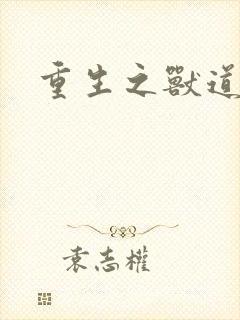 重生之獸道
袁志權